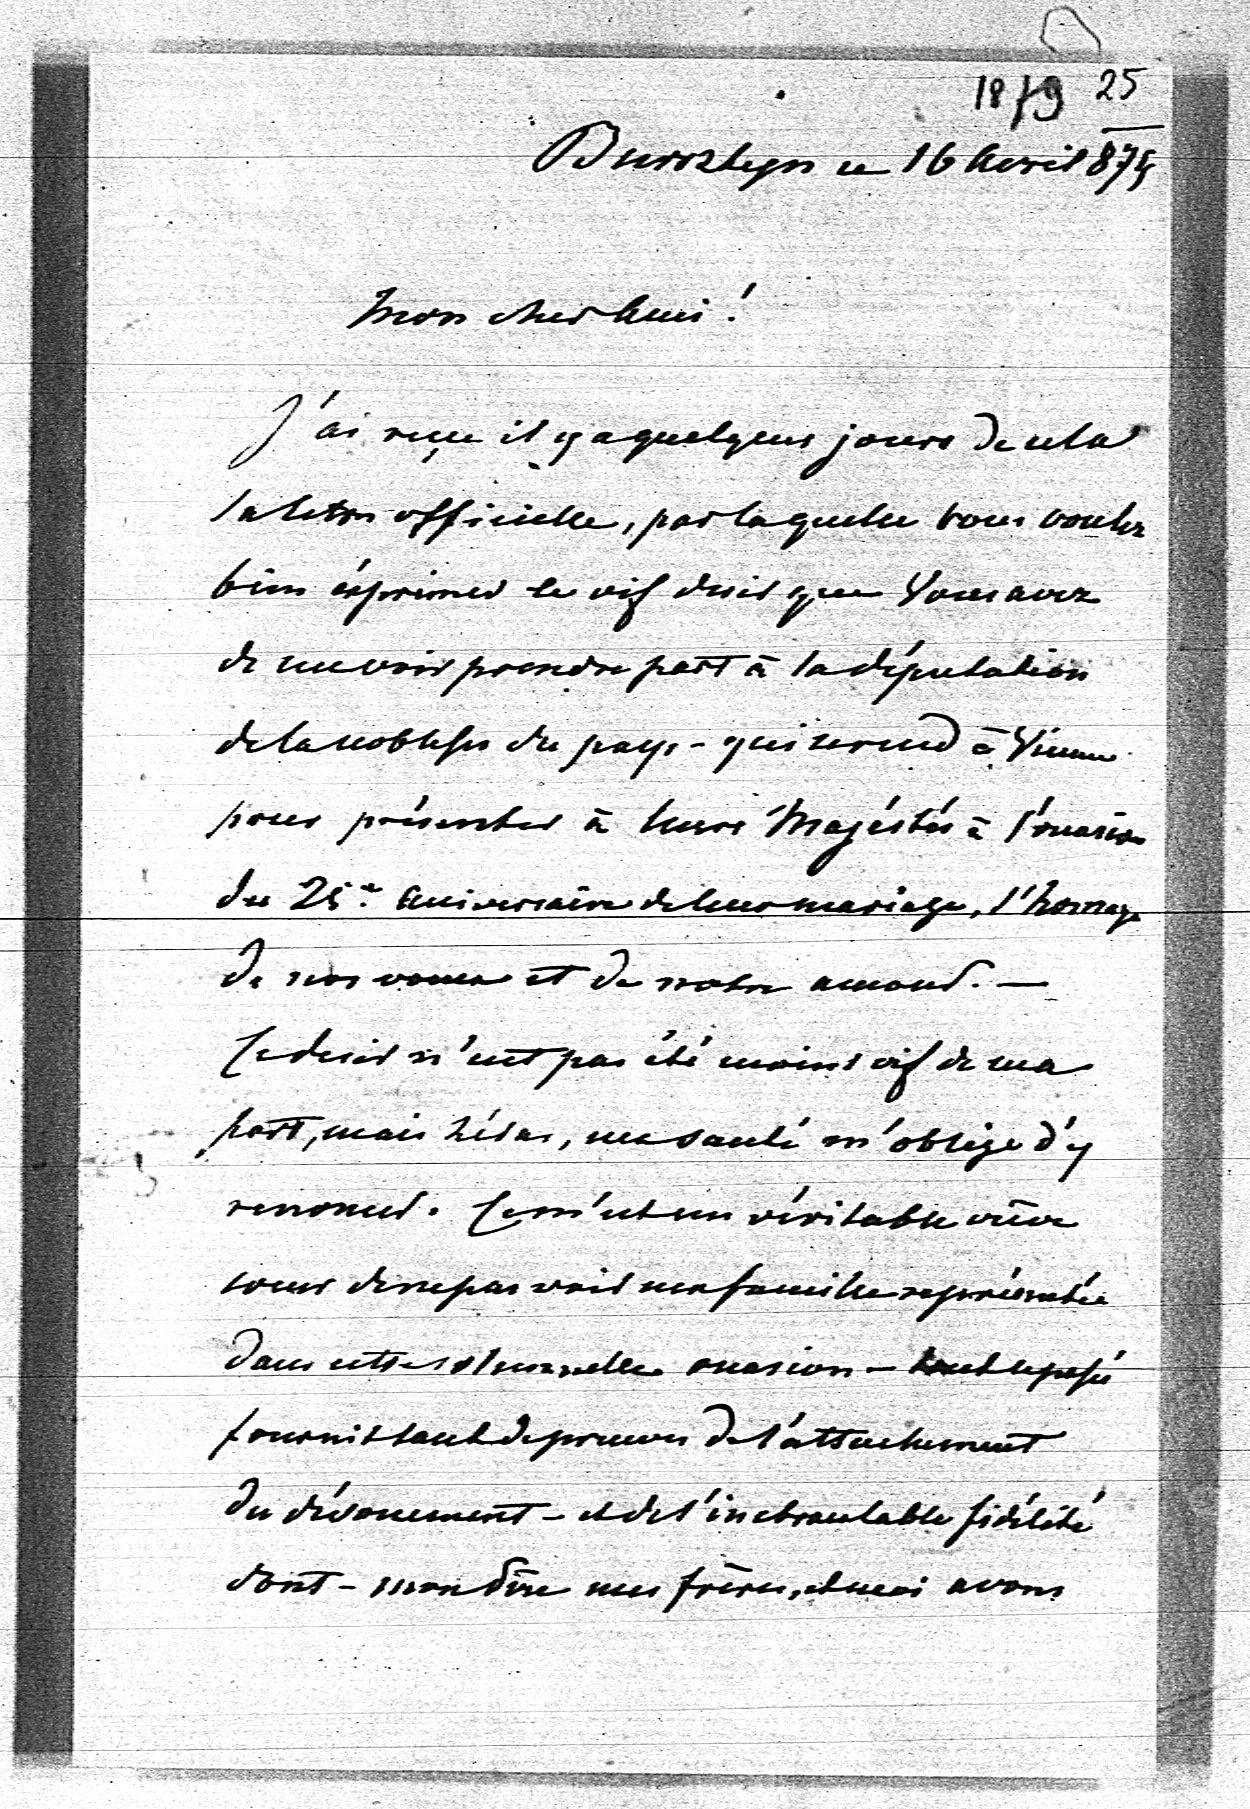 1879 25
Bursztyn ce 16 Avril 879
Mon cher Ami!
J'ai reçu il y a quelques jours de cela
la lettre officielle, par laquelle vous voulez
bien éxprimer le vif desir que Vous avez
de me voir prendre part à la députation
de la noblesse du pays - qui se rend à Vienne
pour présenter à leurs Majéstés à l'ocasion
du 25e aniversaire de leur mariage, l'homage
de nos voeux et de notre amour. —
Ce desir n'eut pas été moins vif de ma
part, mais hélas, ma santé m'oblige d'y
renoncer. Ce m'est un véritable crève
coeur de ne pas voir ma famille représentée
dans cette solennelle ocasion - tout le passé
fournit tant de preuves de l'attachement
du dévouement - et de l'inebranlable fidélité
dont - mon Père mes frères, et moi avons